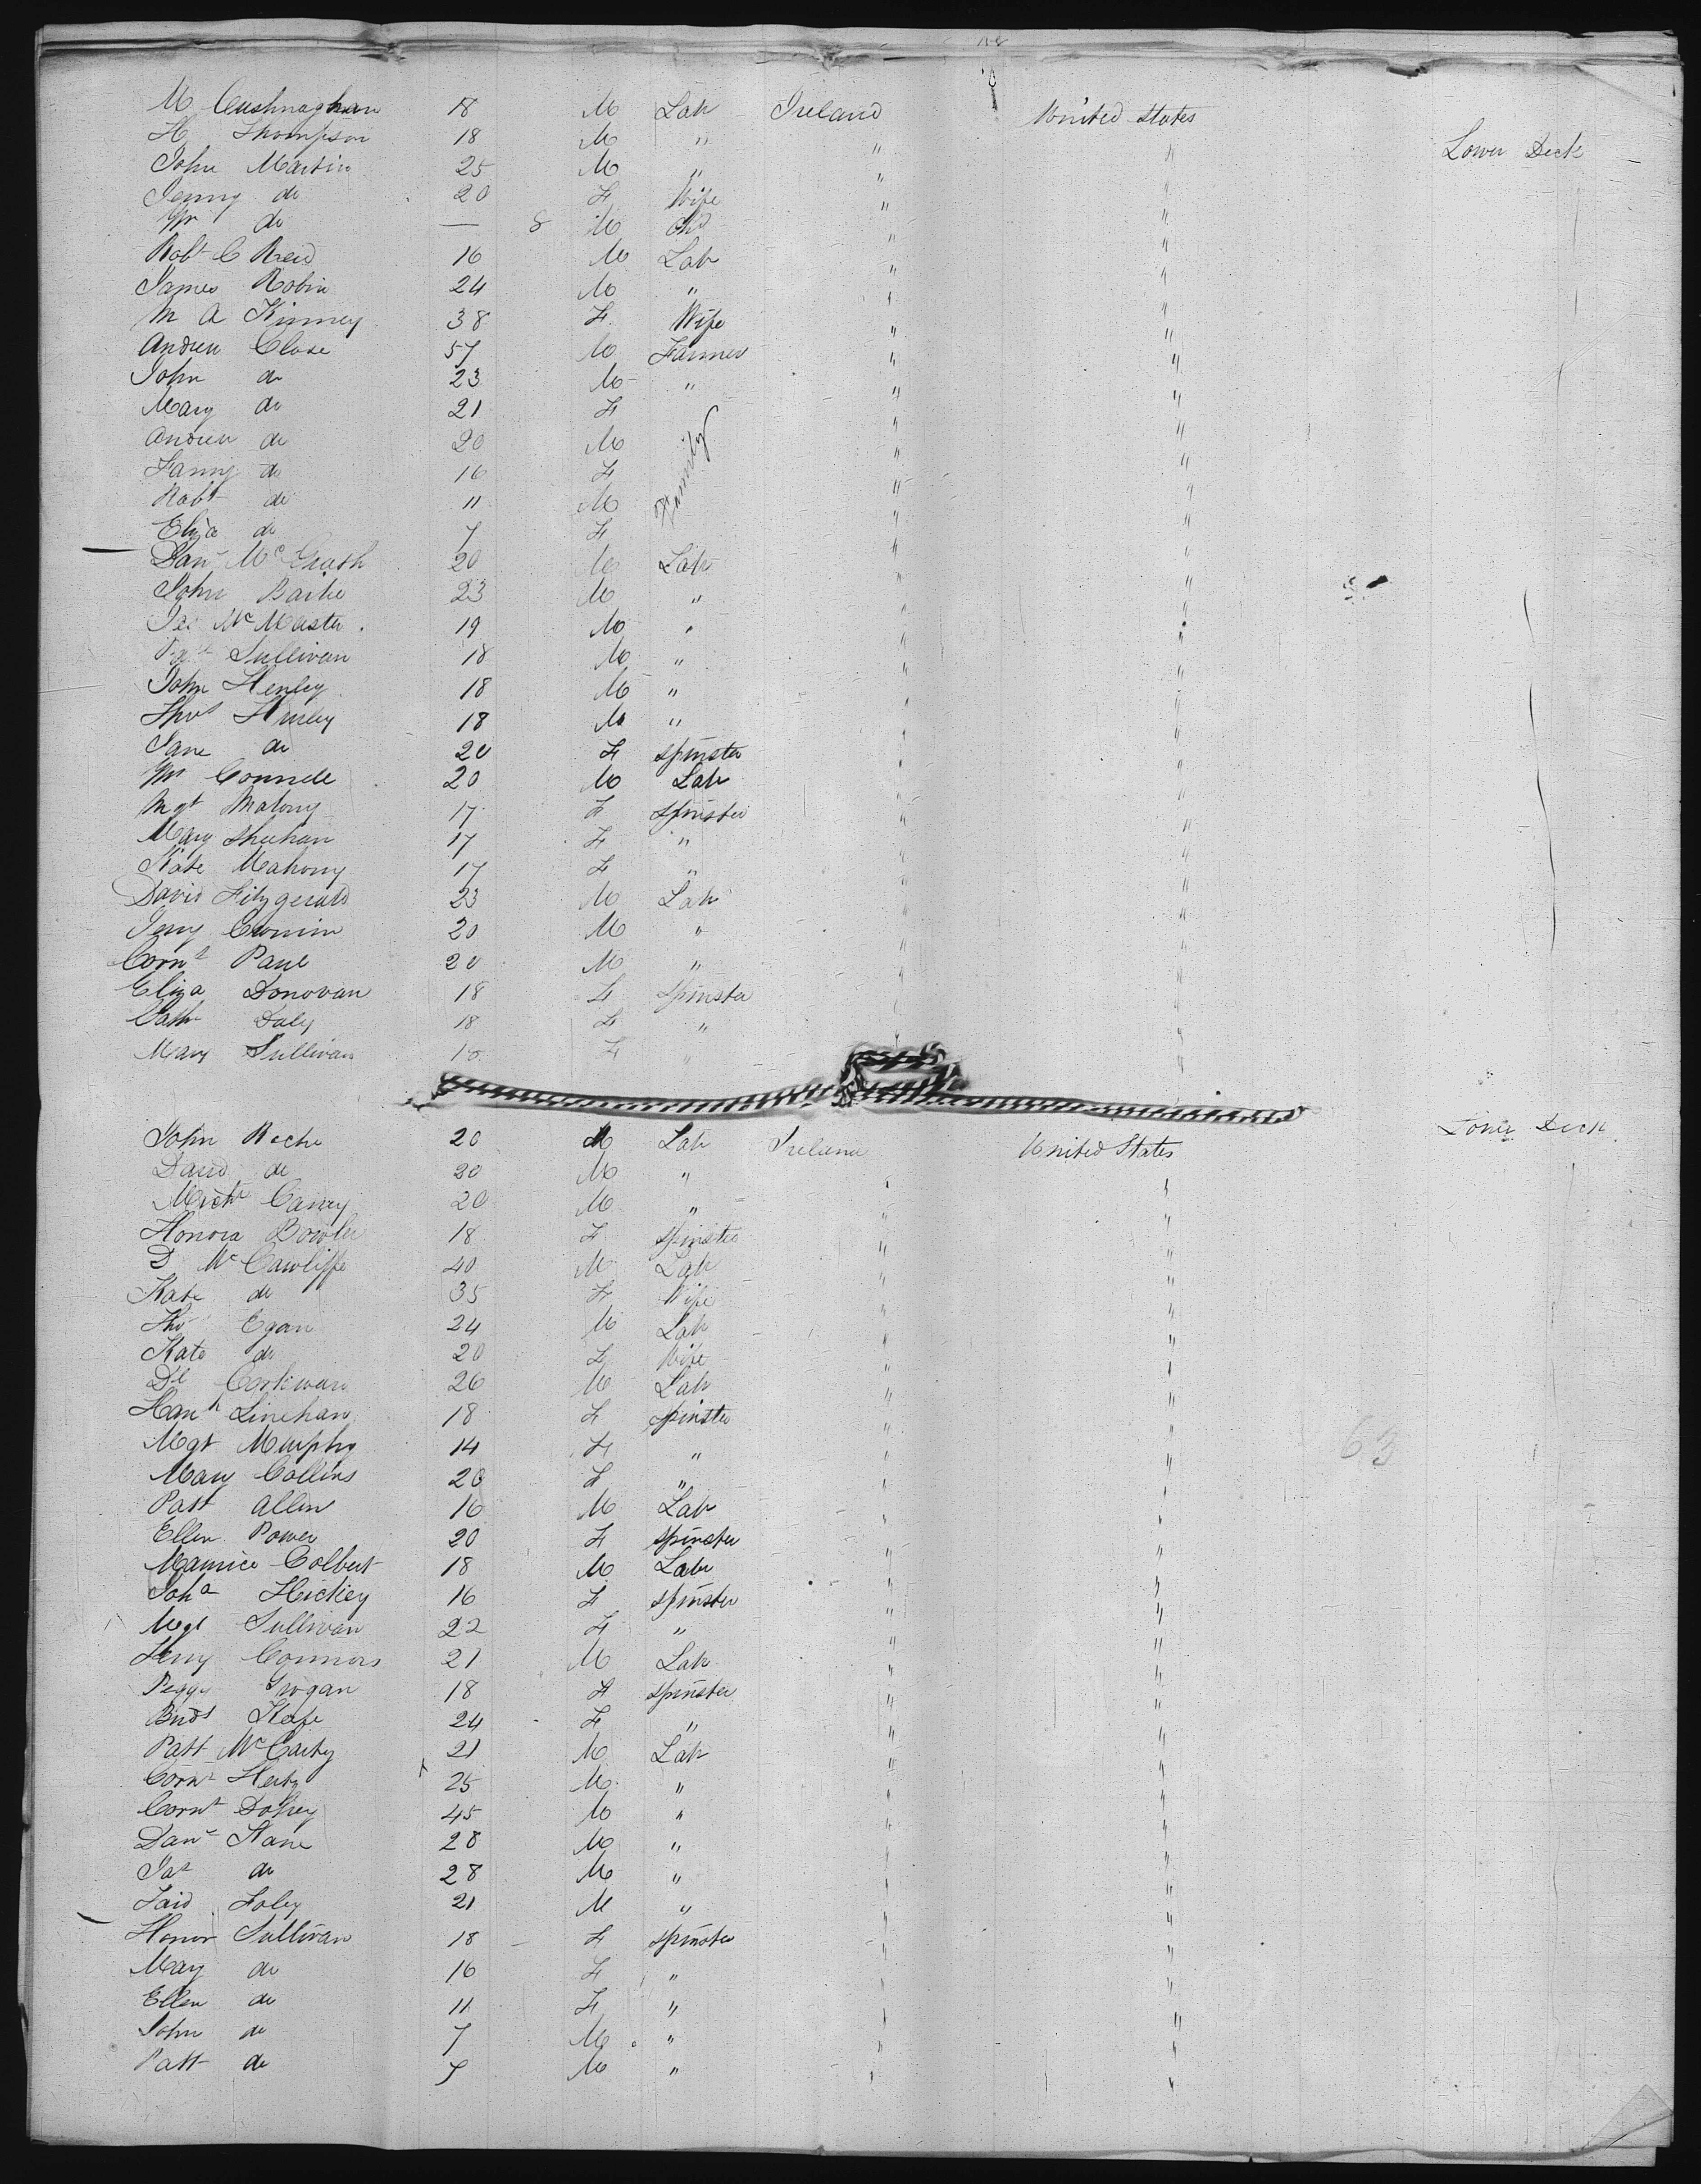 M Cushnaghan 18 M Lab Ireland United States
H Thompson 18 M " " " Lower Deck
John Martin 25 M " " "
Jenny do 20 F Wife " "
Wm do — 8 M Chd " "
Robt C Reid 16 M Lab " "
James Robin 24 M " " "
M A Kinney 38 F Wife " "
Andrew Close 57 M Farmer " "
John do 23 M " " "
Mary do 21 F " "
Andrew do 20 M Family " "
Fanny do 16 F " "
Robt do 11 M " "
Eliza do 7 F " "
Danl McGrath 20 M Lab " "
John Bailie 23 M " " "
Jas McMaster 19 M " " "
Pat Sullivan 18 M " " "
John Henley 18 M " " "
Thos Hurley 18 M " " "
Jane do 20 F Spinster " "
Wm Connell 20 M Lab " "
Mgt Malony 17 F Spinster " "
Mary Sheehan 17 F " " "
Kate Mahony 17 F " " "
David Fitzgerald 23 M Lab " "
Jerry Cronin 20 M " " "
Corns Paul 20 M " " "
Eliza Donovan 18 F Spinster " "
Cath Daly 18 F " " "
Mary Sullivan F " " "
John Roche 20 M Lab Ireland United States Lower Deck
David do 20 M " " "
Michl Carey 20 M " " "
Honora Bowler 18 F Spinster " "
D McCawliffe 40 M Lab " "
Kate do 35 F Wife " "
Tho Egan 24 M Lab " "
Kate do 20 F Wife " "
Dl Corkwan 26 M Lab " "
Hanh Linehan 18 F Spinster " "
Mgt Murphy 14 F " " " 63
Mary Collins 20 F " " "
Patt Allen 16 M Lab " "
Ellen Power 20 F Spinster " "
Maurice Colbert 18 M Lab " "
Joha Hickey 16 F Spinster " "
Mgt Sullivan 22 F " " "
Jerry Connors 21 M Lab " "
Peggy Grogan 18 F Spinster " "
Bridt Keefe 24 F " " "
Patt McCarty 21 M Lab " "
Corns 25 M " " "
Corns Dohey 45 M " " "
Danl Kane 28 M " " "
Jas do 28 M " " "
Foley 21 M " " "
Honor Sullivan 18 F Spinster " "
Mary do 16 F " " "
Ellen do 11 F " " "
John do 7 M " " "
Patt do 5 M " " "